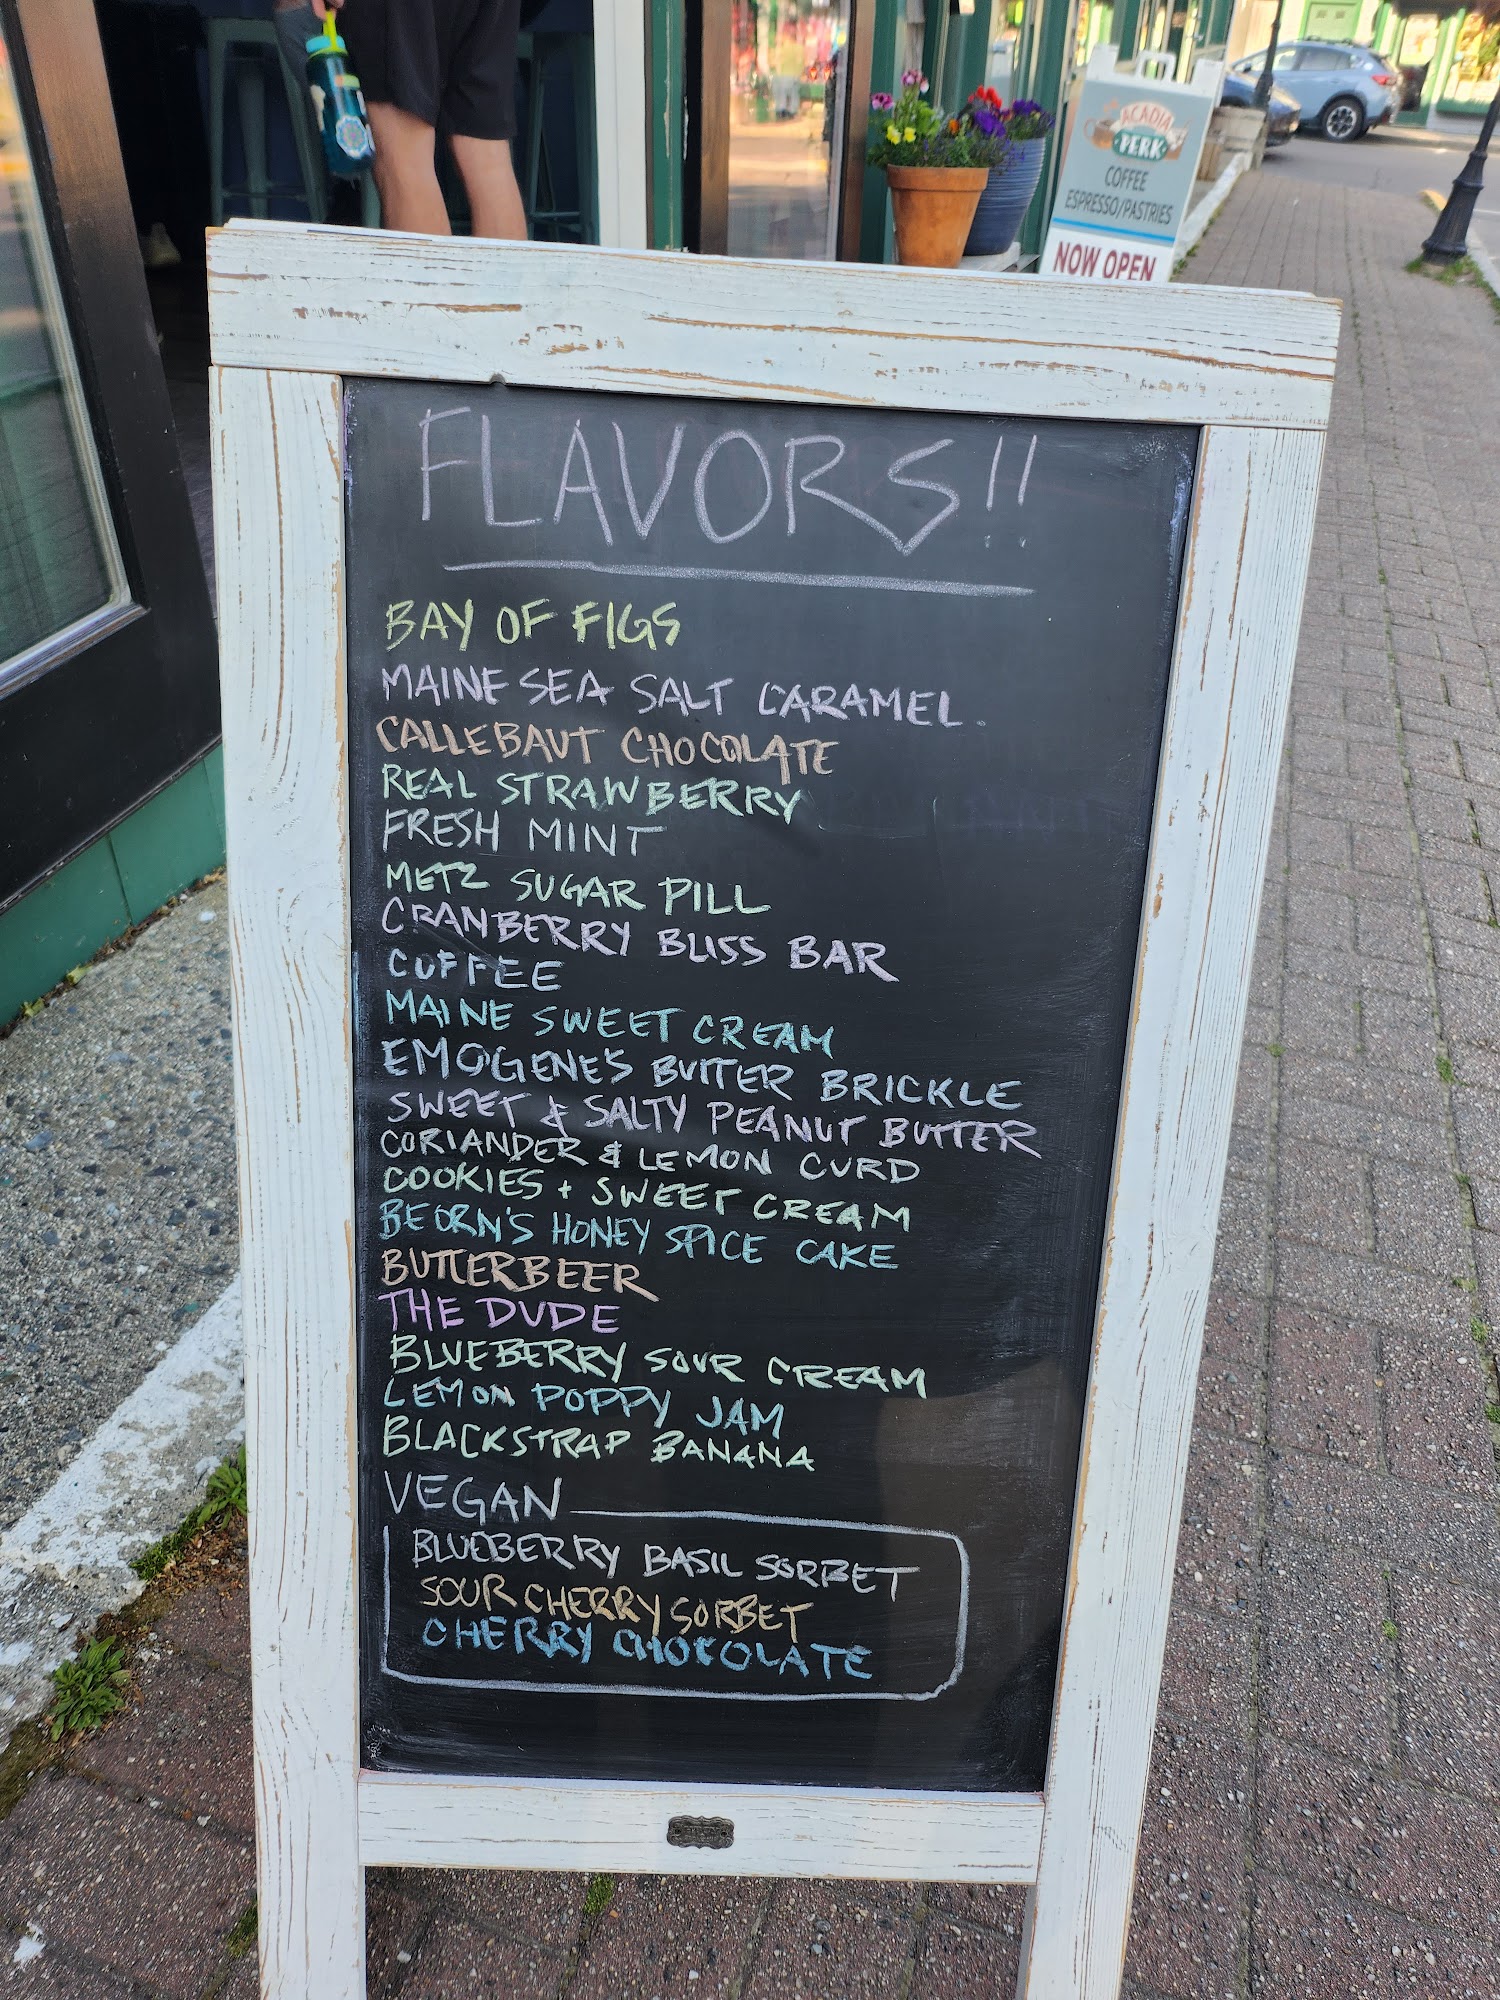 ACADIA
PERK
COFFEE
ESPRESSO/PASTRIES
NOW OPEN
FLAVORS!!
BAY OF FIGS
MAINE SEA SALT CARAMEL.
CALLEBAUT CHOCOLATE
REAL STRAWBERRY
FRESH MINT
METZ SUGAR PILL
CRANBERRY BLISS BAR
COFFEE
MAINE SWEET CREAM
EMOGENE'S BUTTER BRICKLE
SWEET & SALTY PEANUT BUTTER
CORIANDER & LEMON CURD
COOKIES + SWEET CREAM
BEORN'S HONEY SPICE CAKE
BUTTERBEER
THE DUDE
BLUEBERRY SOUR CREAM
LEMON POPPY JAM
BLACKSTRAP BANANA
VEGAN
BLUEBERRY BASIL SORBET
SOUR CHERRY SORBET
CHERRY CHOCOLATE